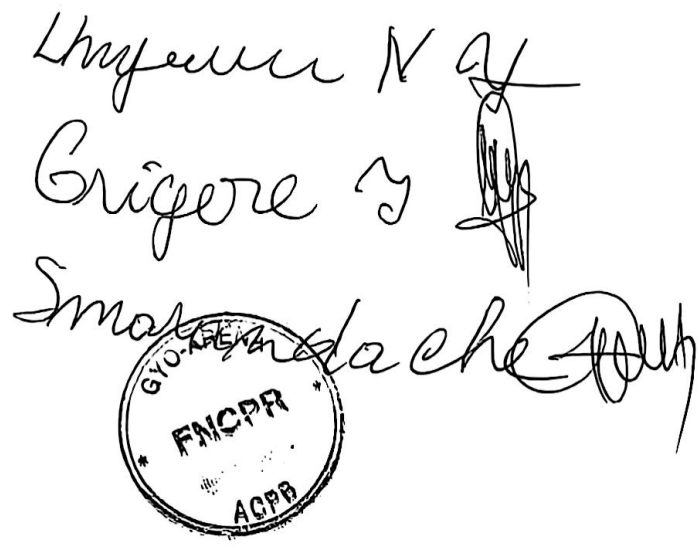 N
Grigore I
Smarandache
GYO-ARENA
FNCPR
ACPR